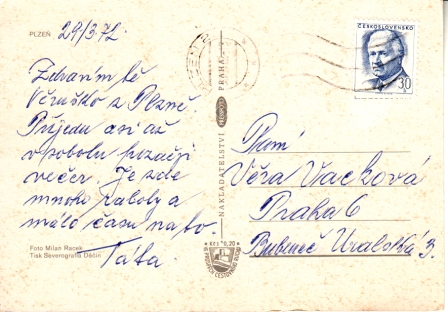 PLZEŇ
29/3.72
Zdravím tě
Věruško z Plzně.
Přijedu asi až
v sobotu pozdě
večer. Je zde
mnoho
málo času na to.
Táta.
Foto Milan Racek
Tisk Severografia Děčín
NAKLADATELSTVÍ PRESSFOTO PRAHA
Kčs 0,20
ČESKOSLOVENSKO
30
Věra
Praha 6
Bubeneč Uralská 3.